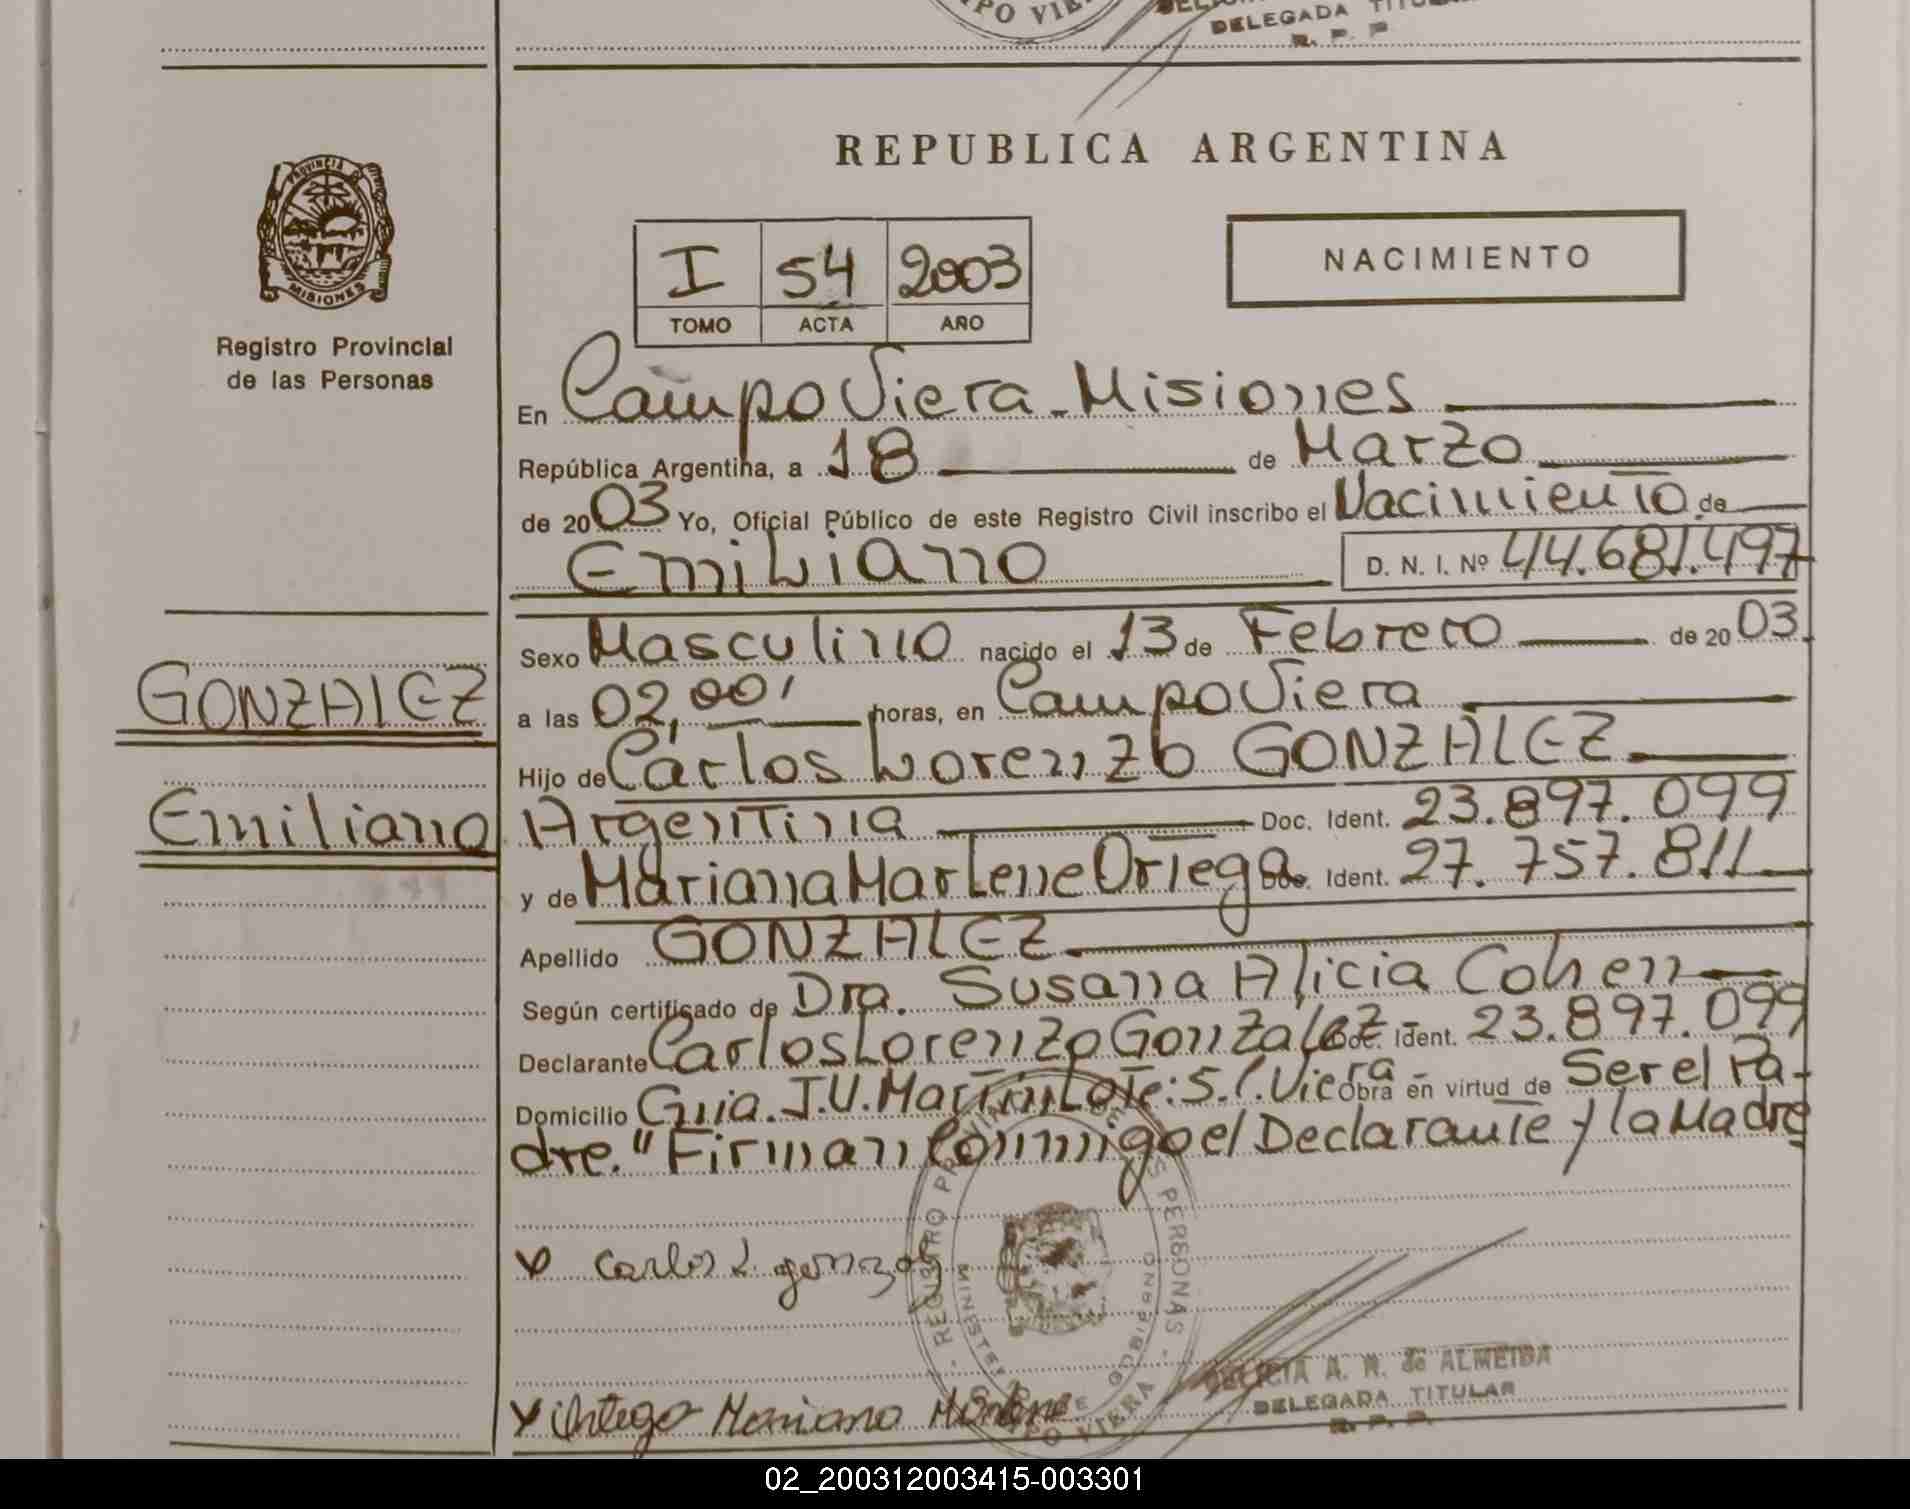 DELEGADA TITULAR
R. P. P.
REPUBLICA ARGENTINA
PROVINCIA DE
MISIONES
Registro Provincial
de las Personas
I 54 2003
TOMO ACTA AÑO
NACIMIENTO
En Campo Viera - Misiones
República Argentina, a 18 de Marzo
de 2003 Yo, Oficial Público de este Registro Civil inscribo el Nacimiento de
Emiliano D. N. I. Nº 44.681.497
Sexo Masculino nacido el 13 de Febrero de 2003
GONZALEZ
a las 02,00' horas, en Campo Viera
Hijo de Carlos Lorenzo GONZALEZ
Emiliano
Argentina Doc. Ident. 23.897.099
y de Mariana Marlene Ortega Doc. Ident. 27.757.811
Apellido GONZALEZ
Según certificado de Dra. Susana Alicia Cohen
Declarante Carlos Lorenzo Gonzalez Doc. Ident. 23.897.099
Domicilio Gnia. J.V. Martin Lote: 5. C. Viera Obra en virtud de Ser el Pa-
dre." Firman Conmigo el Declarante y la Madre
x Carlos L gonzalez
REGISTRO PROVINCIAL DE LAS PERSONAS
CAMPO VIERA
DELICIA A. N. de ALMEIDA
DELEGADA TITULAR
R. P. P.
x Ortega Mariana Marlene
02_200312003415-003301